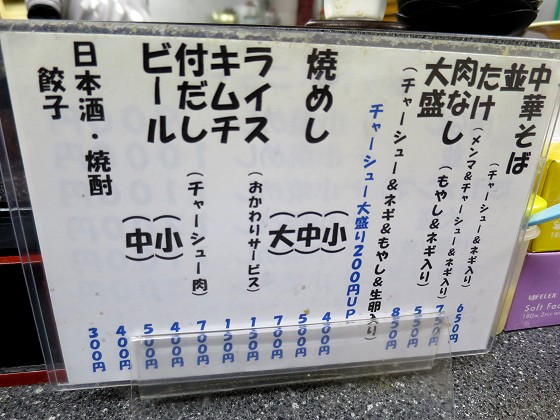 中華そば
並 （チャーシュー&ネギ入り） 650円
たけ （メンマ&チャーシュー&ネギ入り） 750円
肉なし （もやし&ネギ入り） 550円
大盛 （チャーシュー&ネギ&もやし&生卵入り） 850円
チャーシュー大盛り200円UP
焼めし （小） 400円
（中） 500円
（大） 700円
ライス （おかわりサービス） 130円
キムチ 100円
付だし （チャーシュー肉） 700円
ビール （小） 400円
（中） 500円
日本酒・焼酎 400円
餃子 300円
FELER
Soft
180